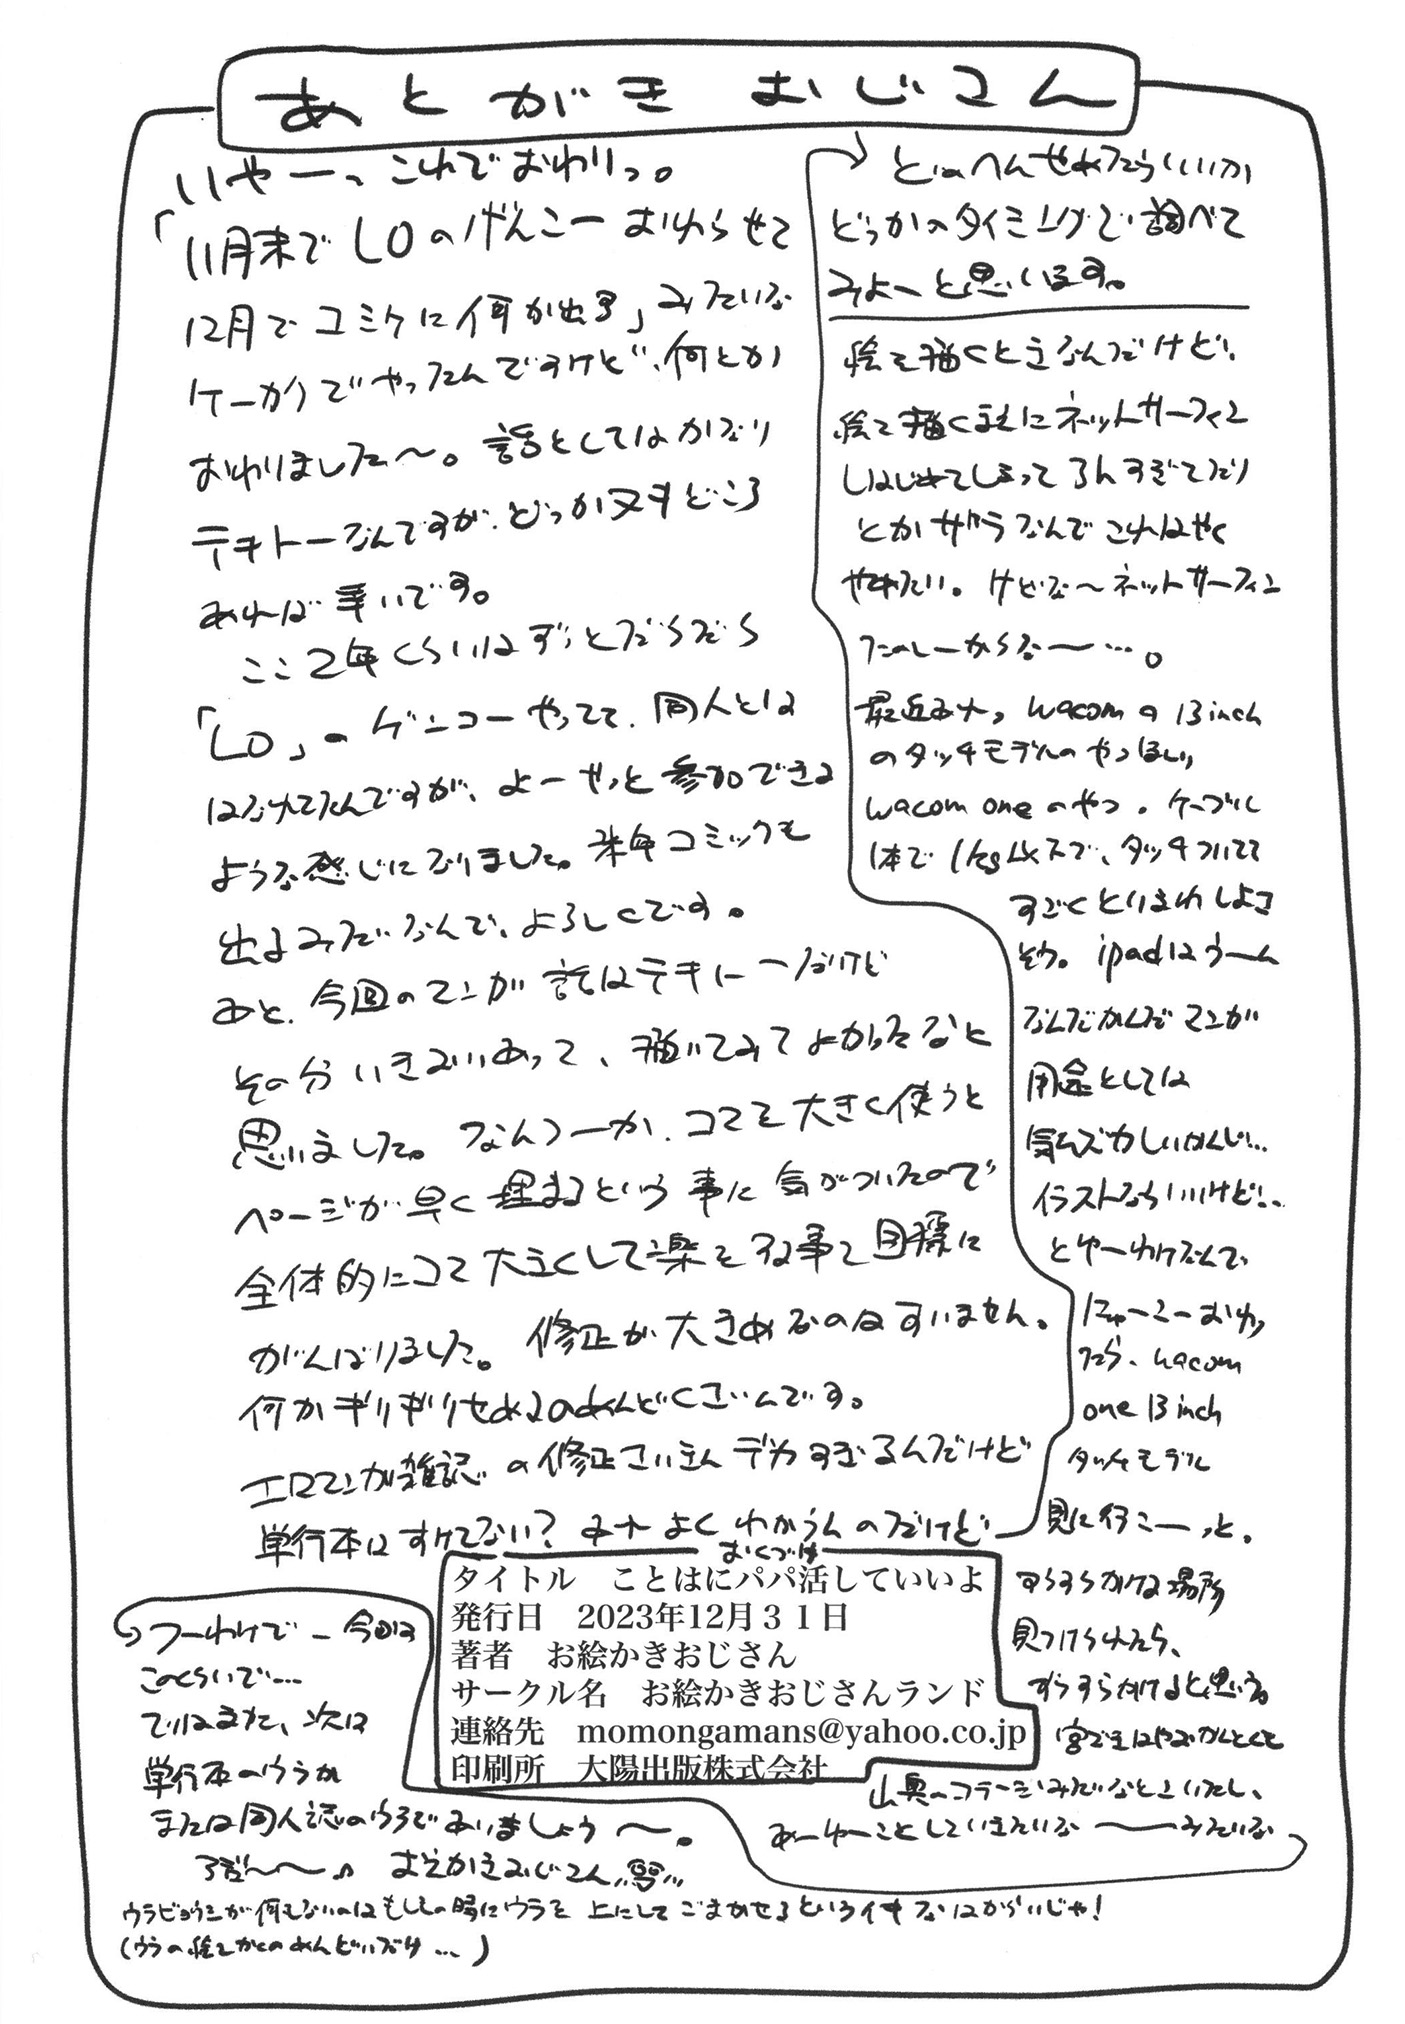 あとがきおじさん
いやーっこれでおわりっ。
「11月末でLOのげんこーおわらせて
12月でコミケに何か出す」みたいな
ケーカクでやってたんですけど、何とか
おわりました〜。話としてはかなり
テキトーなんですが、どっか又キどころ
あれば幸いです。
ここ2年くらいはずっとだらだら
「LO」のゲンコーやってて、同人とは
はなれてたんですが、よーやっと参加できる
ような感じになりました。来年コミックも
出るみたいなんで、よろしくです。
あと、今回のマンガ話はテキトーだけど
その分いきおいあって、描いてみてよかったなと
思いました。なんつーか、コマを大きく使うと
ページが早く埋まるという事に気がついたので
全体的にコマ大きくして楽をする事を目標に
がんばりました。修正が大きめなのはすいません。
何かギリギリせめるのめんどくさいんです。
エロマンガ雑誌の修正さいきんデカすぎるんだけど
単行本はすけてない?みたいなよくわからんのだけど
どのへんせめたらいいか
どっかのタイミングで調べて
みよーと思います。
絵を描くときなんだけど、
絵を描くまえにネットサーフィン
しはじめてしまって
とかザラなんでこれはやく
やめたい。けどな〜ネットサーフィン
たのしーからな〜…。
最近あれ。wacomの13inch
のタッチモデルのやつほしい
wacom oneのやつ。ケーブル
1本で1kg以下で、タッチついてて
すごくとりまわしよさ
そう。ipadはうーん
なんだかんだマンガ
用途としては
気むズカしいかんじ…
イラストならいいけど…
とゆーわけなんで
にゅーこーおわっ
たら、wacom
one 13inch
タッチモデル
見に行こーっと。
すらすらかける場所
見つけられたら、
すらすらかけると思う。
宮ざきはやおかんとくも
山奥のコテージみたいなとこいたし、
あーゆーことしていきたいな〜みたいな
つーわけで_今回は
このくらいで…
ではまた、次は
単行本のウラか
または同人誌のウラであいましょう〜。
おえかきおじさん
ウラビョウシが何もないのはもしもの時にウラを上にしてごまかせるというイキなはからいじゃ!
(ウラの絵をかくのめんどいだけ…)
おくづけ
タイトル　ことはにパパ活していいよ
発行日　2023年12月３１日
著者　お絵かきおじさん
サークル名　お絵かきおじさんランド
連絡先　momongamans@yahoo.co.jp
印刷所　大陽出版株式会社